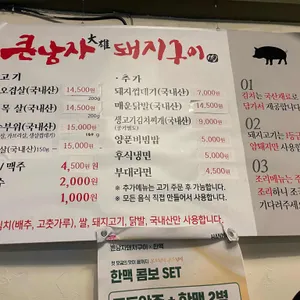 큰남자 大雄 돼지구이
고기
오겹살(국내산) 14,500원
200g
목 살(국내산) 14,500원
200g
수부위(국내산) 15,000원
살(국내산)150g 15,000원
/ 맥주 4,500원
2,000원
1,000원
· 추가
돼지껍데기(국내산) 7,000원
매운닭발(국내산) 14,500원
생고기김치찌개(국내산) 9,000원
양푼비빔밥 5,000원
후식냉면 5,000원
부대라면 4,500원
※ 추가메뉴는 고기 주문 후 가능합니다.
※ 모든 음식 직접 만들어서 사용합니다.
치(배추, 고춧가루), 쌀, 돼지고기, 닭발, 국내산만 사용합니다.
01
김치는 국산재료로
담가서 제공하고 있
02
돼지고기는
암퇘지만 사용
03
조리메뉴는
조리하니 조
기다려주세
한맥 콤보 SET
한맥 2병